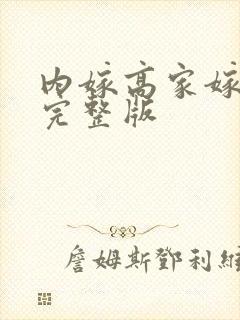 内嫁高家嫁
完整版
詹姆斯鄧利維